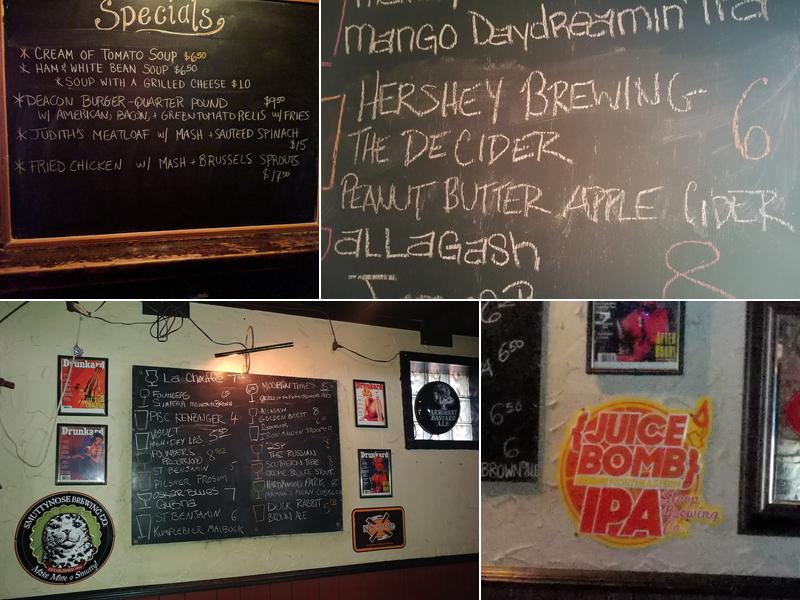 Specials
* CREAM OF TOMATO SOUP $6.50
* HAM & WHITE BEAN SOUP $6.50
* SOUP WITH A GRILLED CHEESE $10
* DEACON BURGER-QUARTER POUND $9.50
W/ AMERICAN, BACON, + GREEN TOMATO RELIS W/ FRIES
* JUDITH'S MEATLOAF W/ MASH + SAUTEED SPINACH
$15
* FRIED CHICKEN W/ MASH + BRUSSELS SPROUTS
$17.50
mango Daydreamin'
HERSHEY BREWING
THE DECIDER 6
PEANUT BUTTER APPLE CIDER
ALLAGASH
8
Drunkard
Drunkard
SMUTTYNOSE BREWING CO.
Make Mine a Smutty!
La Chouffe 7
FOUNDERS
PBC KENZINGER 4
VAULT
FOUNDERS
ST BENJAMIN 5
PILSNER PROSIM
OSKAR BLUES 7
GUBNA
ST BENJAMIN 6
MAIBOCK
MODERN TIMES
ALLAGASH 8
GOLDEN BRETT
THE RUSSIAN
SOUTHERN TIER 8
CREME BRULEE STOUT
HARDYWOOD PARK 8
DUCK RABBIT
BROWN ALE
Drunkard
Drunkard
ARROGANT
BASTARD
ALE
6.50
6.50
6
BROWN ALE
AFTER
JUICE
BOMB
IPA
Sloop
Brewing
Co.